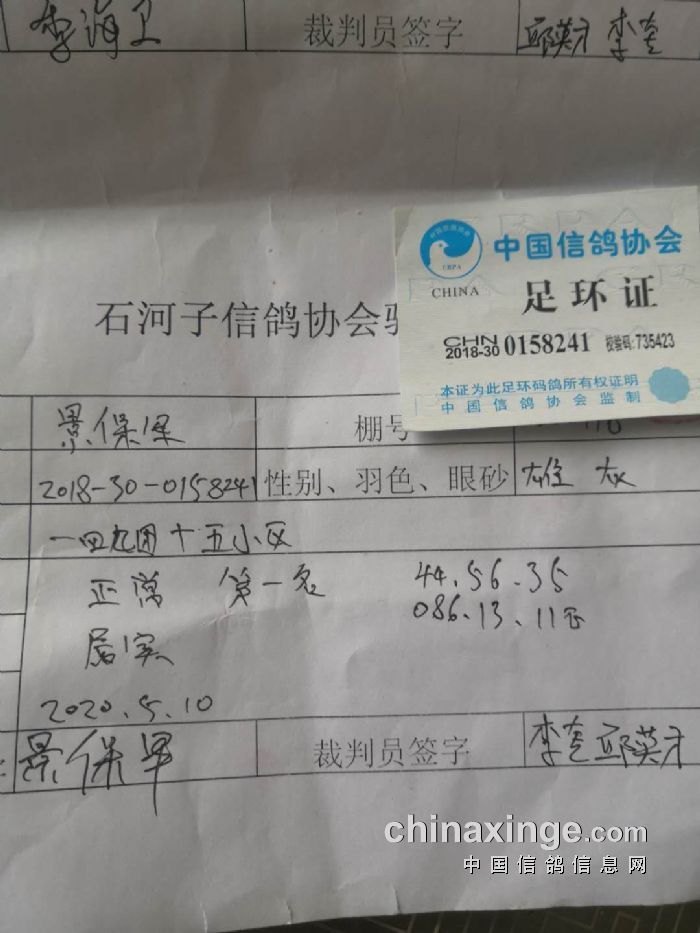 李海卫 裁判员签字 邱英才 李奎
中国信鸽协会
中国信鸽协会
CRPA
CHINA
足环证
CHN
2018-30 0158241 校验码:735423
本证为此足环码鸽所有权证明
中国信鸽协会监制
石河子信鸽协会
景保军 棚号
2018-30-0158241 性别、羽色、眼砂 雄 灰
一四九团十五小区
正常 第一名 44.56.35
086.13.11
居实
2020.5.10
景保军 裁判员签字 李奎 邱英才
chinaxinge.com
中国信鸽信息网